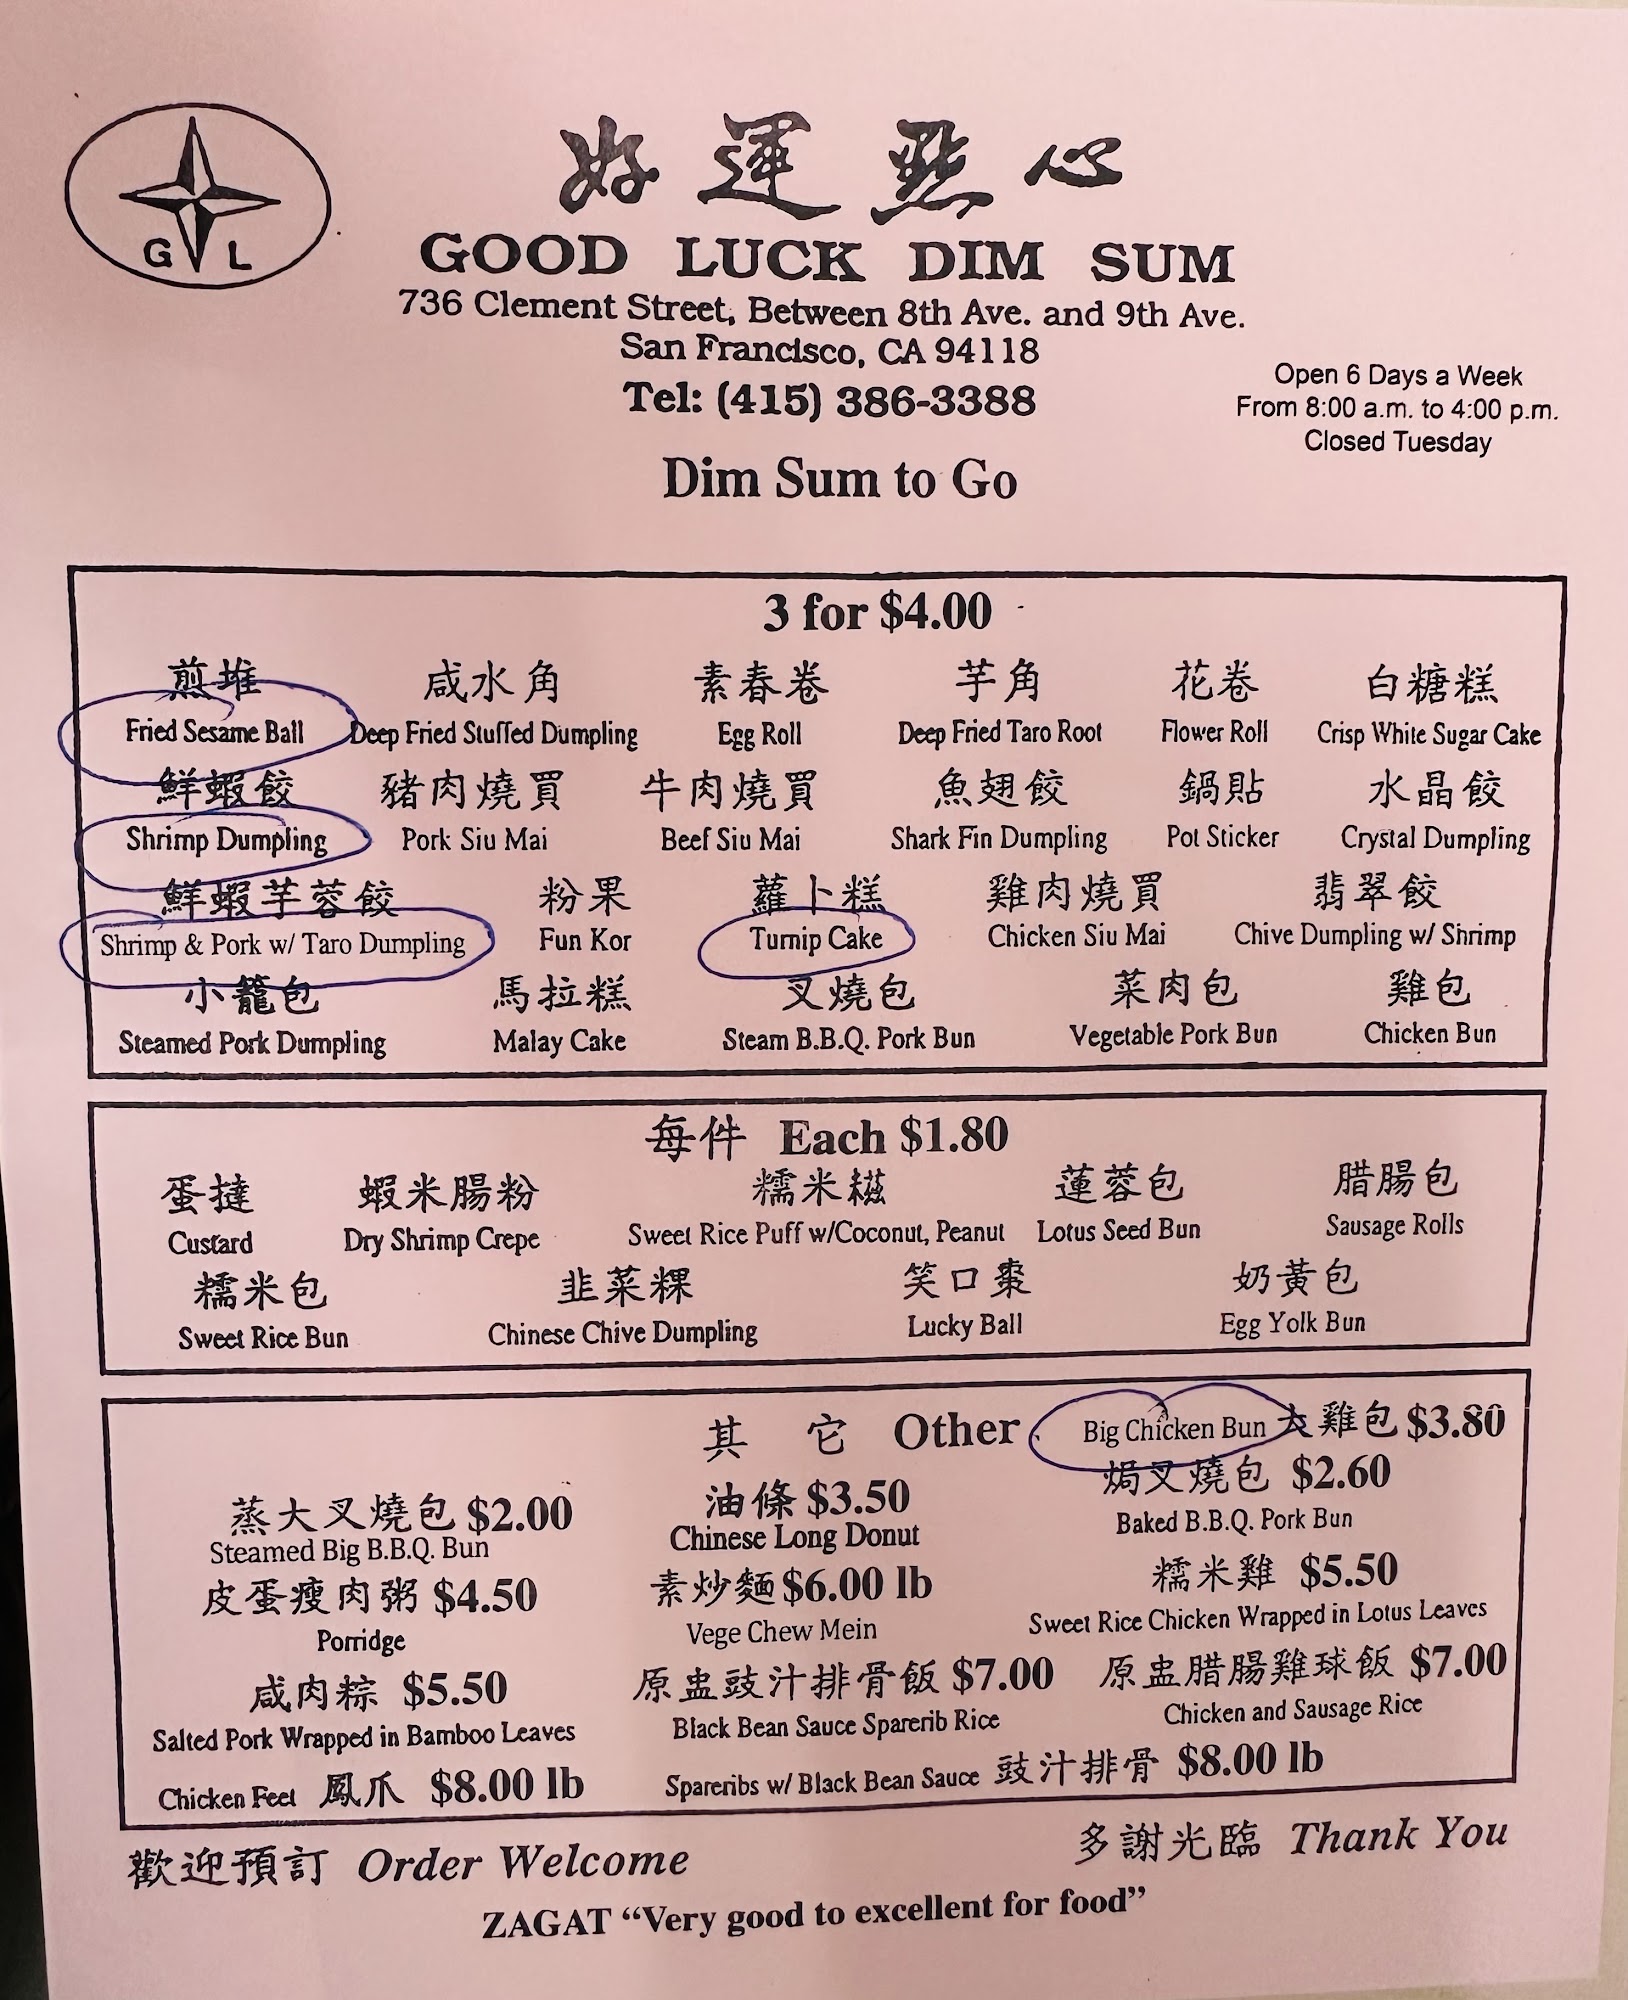 好運點心
G L
GOOD LUCK DIM SUM
736 Clement Street, Between 8th Ave. and 9th Ave.
San Francisco, CA 94118
Tel: (415) 386-3388
Open 6 Days a Week
From 8:00 a.m. to 4:00 p.m.
Closed Tuesday
Dim Sum to Go
3 for $4.00
煎堆 咸水角 素春卷 芋角 花卷 白糖糕
Fried Sesame Ball Deep Fried Stuffed Dumpling Egg Roll Deep Fried Taro Root Flower Roll Crisp White Sugar Cake
鮮蝦餃 豬肉燒買 牛肉燒買 魚翅餃 鍋貼 水晶餃
Shrimp Dumpling Pork Siu Mai Beef Siu Mai Shark Fin Dumpling Pot Sticker Crystal Dumpling
鮮蝦芋蓉餃 粉果 蘿卜糕 雞肉燒買 翡翠餃
Shrimp & Pork w/ Taro Dumpling Fun Kor Turnip Cake Chicken Siu Mai Chive Dumpling w/ Shrimp
小籠包 馬拉糕 叉燒包 菜肉包 雞包
Steamed Pork Dumpling Malay Cake Steam B.B.Q. Pork Bun Vegetable Pork Bun Chicken Bun
每件 Each $1.80
蛋撻 蝦米腸粉 糯米糍 蓮蓉包 腊腸包
Custard Dry Shrimp Crepe Sweet Rice Puff w/Coconut, Peanut Lotus Seed Bun Sausage Rolls
糯米包 韭菜粿 笑口棗 奶黃包
Sweet Rice Bun Chinese Chive Dumpling Lucky Ball Egg Yolk Bun
其它 Other Big Chicken Bun 大雞包 $3.80
蒸大叉燒包 $2.00 油條 $3.50 焗叉燒包 $2.60
Steamed Big B.B.Q. Bun Chinese Long Donut Baked B.B.Q. Pork Bun
皮蛋瘦肉粥 $4.50 素炒麵 $6.00 lb 糯米雞 $5.50
Porridge Vege Chew Mein Sweet Rice Chicken Wrapped in Lotus Leaves
咸肉粽 $5.50 原盅豉汁排骨飯 $7.00 原盅腊腸雞球飯 $7.00
Salted Pork Wrapped in Bamboo Leaves Black Bean Sauce Sparerib Rice Chicken and Sausage Rice
Chicken Feet 鳳爪 $8.00 lb Spareribs w/ Black Bean Sauce 豉汁排骨 $8.00 lb
歡迎預訂 Order Welcome 多謝光臨 Thank You
ZAGAT “Very good to excellent for food”